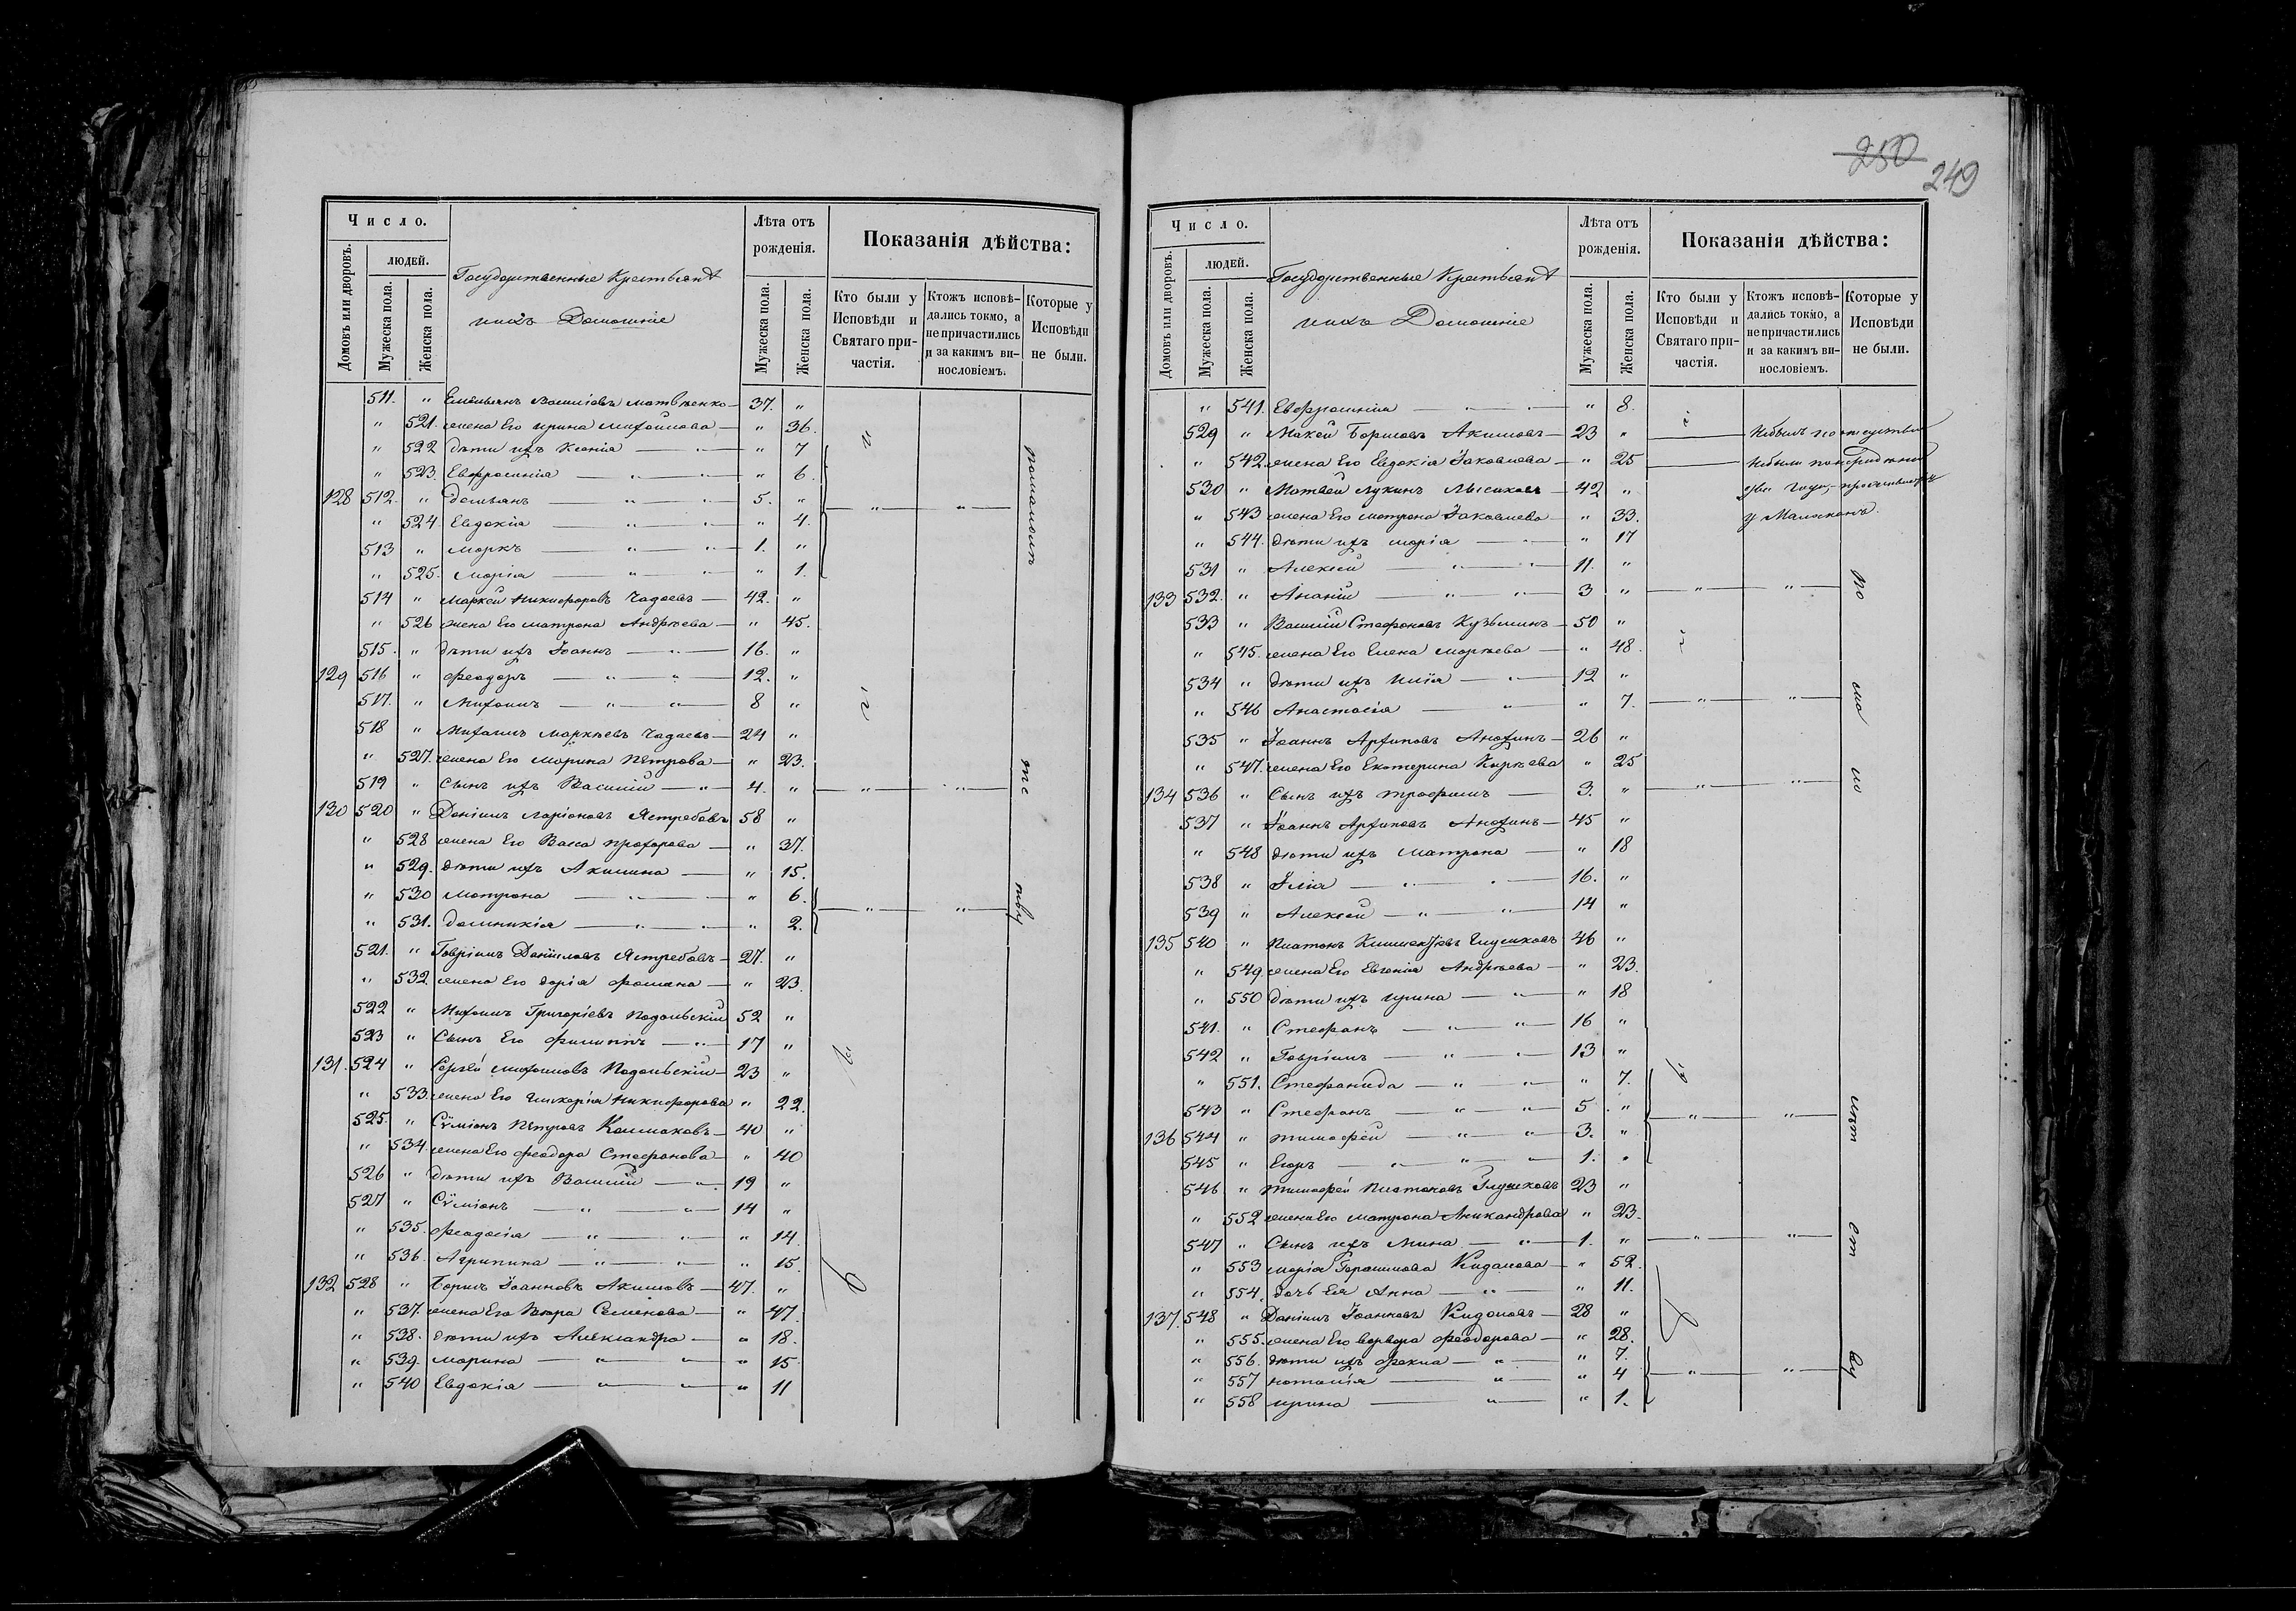 250
249
Число.
Домовъ или дворовъ.
людей.
Мужеска пола.
Женска пола.
Государственные Крестьяне и
ихъ Домашніе
Лѣта отъ рожденія.
Мужеска пола.
Женска пола.
Показанія дѣйства:
Кто были у Исповѣди и Святаго причастія.
Ктожъ исповѣдались токмо, а не причастились и за какимъ винословіемъ.
Которые у Исповѣди не были.
511. " Емельянъ Василіевъ Матвѣенко 37. "
" 521. жена Его Ирина Михаилова " 36.
" 522 дѣти ихъ Ксенія " 7
" 523. Евфросинія " 6.
128 512. " Демьянъ 5. "
" 524. Евдокія " 4.
513 " Маркъ 1. "
" 525. Марія " 1.
514 " Маркей Никифоровъ Чадаевъ 42. "
" 526 жена Его Матрона Андрѣева " 45.
515. " дѣти ихъ Іоаннъ 16. "
129 516 " Феодоръ 12. "
517. " Михаилъ 8 "
518 " Михаилъ Маркѣевъ Чадаевъ 24 "
" 527. жена Его Марина Петрова " 23.
519 " Сынъ ихъ Василій 4. "
130 520 " Даніилъ Ларіоновъ Ястребовъ 58 "
" 528 жена Его Васса Прохорова " 37.
" 529. дѣти ихъ Акилина " 15.
" 530 Матрона " 6.
" 531. Домникія " 2.
521. " Гавріилъ Даніиловъ Ястребовъ 27. "
" 532. жена Его Дарія Фомина " 23.
522 " Михаилъ Григоріевъ Подольскій 52 "
523 " Сынъ Его Филиппъ 17 "
131. 524 " Сергѣй Михаиловъ Подольскій 23 "
" 533. жена Его Гликерія Никифорова " 22.
525. " Сѵміонъ Петровъ Колмаковъ 40 "
" 534. жена Его Феодора Стефанова " 40
526 " дѣти ихъ Василій 19 "
527 " Сѵміонъ 14 "
" 535. Феодосія " 14.
" 536. Агрипина " 15.
132 528 " Борисъ Іоанновъ Акимовъ 47. "
" 537. жена Его Семенова " 47.
" 538. дѣти ихъ Александра " 18.
" 539. Марина " 15.
" 540 Евдокія " 11
Число.
Домовъ или дворовъ.
людей.
Мужеска пола.
Женска пола.
Государственные Крестьяне и
ихъ Домашніе
Лѣта отъ рожденія.
Мужеска пола.
Женска пола.
Показанія дѣйства:
Кто были у Исповѣди и Святаго причастія.
Ктожъ исповѣдались токмо, а не причастились и за какимъ винословіемъ.
Которые у Исповѣди не были.
" 541. Евфросинія " 8.
529 " Мокей Борисовъ Акимовъ 23 "
" 542. жена Его Евдокія Іаковлева " 25
530 " Матвей Лукинъ 42 "
" 543 жена Его Матрона Іаковлева " 33. у Малаканъ.
" 544. дѣти ихъ Марія " 17
531 " Алексѣй 11. "
133 532. " Ананій 3 "
533 " Василій Стефановъ Кузьминъ 50 "
" 545. жена Его Елена " 48.
534 " дѣти ихъ Илія 12 "
" 546 Анастасія " 7.
535 " Іоаннъ Архиповъ Анохинъ 26 "
" 547. жена Его Екатерина " 25
134 536 " Сынъ ихъ Трофимъ 3. "
537 " Іоаннъ Архиповъ Анохинъ 45 "
" 548 дѣти ихъ Матрона " 18
538 " Илія 16. "
539 " Алексѣй 14 "
135 540 " Платонъ Глушковъ 46 "
" 549. жена Его Евгенія Андрѣева " 23.
" 550 дѣти ихъ Ирина " 18
541. " Стефанъ 16 "
542 " Гавріилъ 13 "
" 551. Стефанида " 7.
543 " Стефанъ 5. "
136 544 " Тимофей 3. "
545 " Егоръ 1. "
546 " Тимофей Платоновъ Глушковъ 23 "
" 552 жена Его Матрона Никандрова " 23.
547 " Сынъ ихъ Мина 1. "
" 553 Марія Герасимова " 52.
" 554. дочь Ея Анна " 11.
137. 548 " Даніилъ Іоанновъ 28 "
" 555. жена Его Варвара Феодорова " 28.
" 556. дѣти ихъ Фекла " 7.
" 557 Наталія " 4
" 558 Ирина " 1.